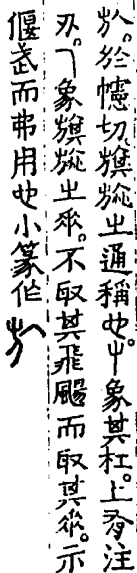 㫃。於幰切旗㫃之通稱也。屮象其杠。上有注
刅。乁象旗㫃之垂。不取其飛颺而取其垂。示
偃武而弗用也小篆作㫃